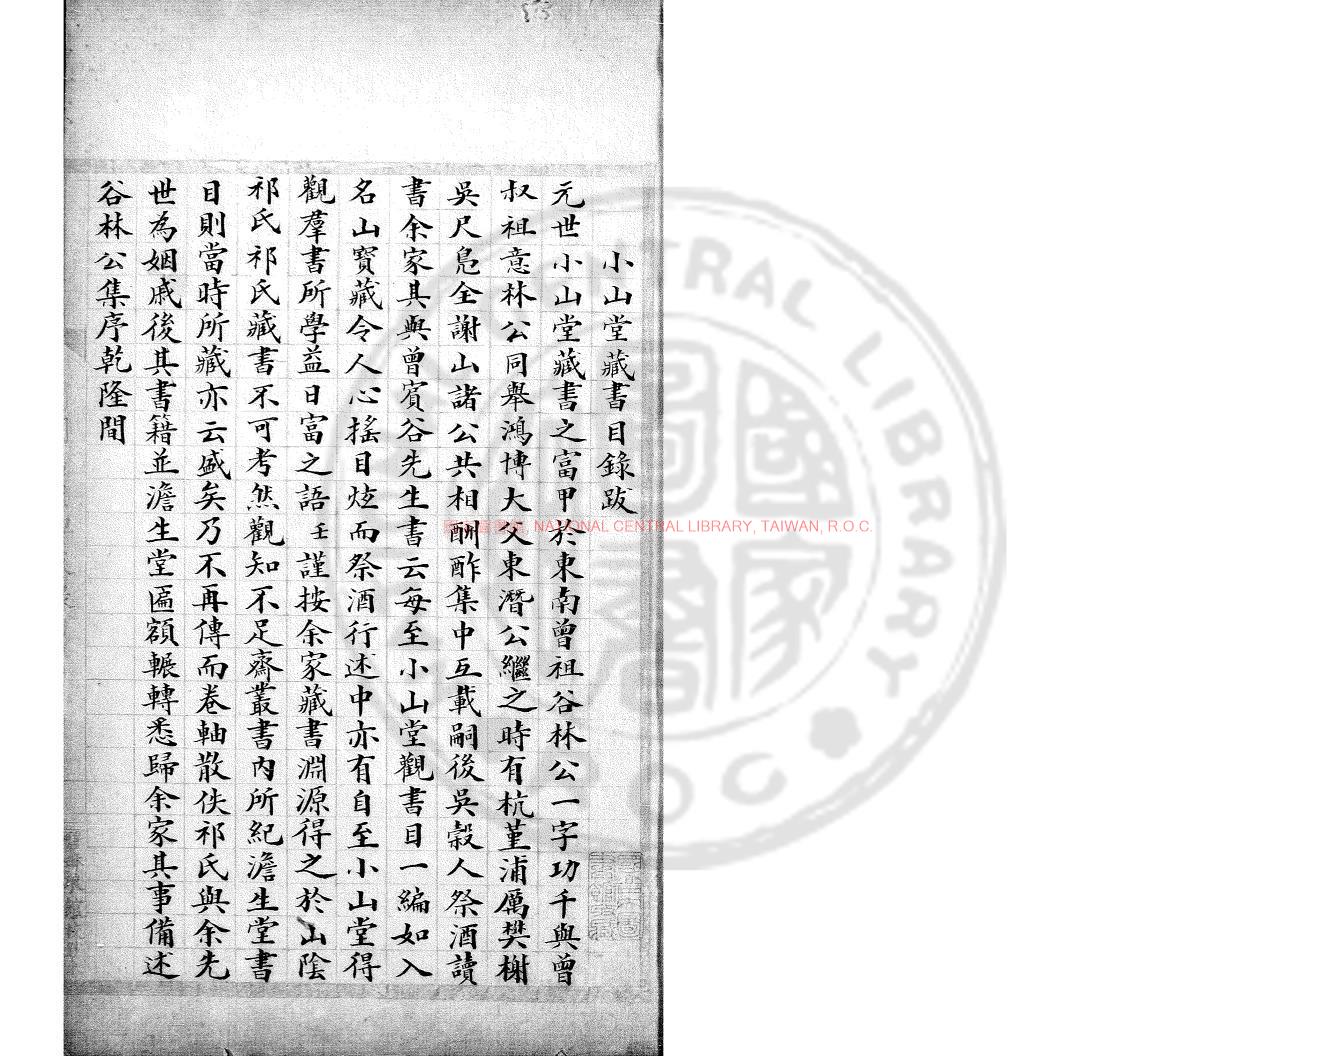 小山堂藏書目錄跋
元世小山堂藏書之富甲於東南曾祖谷林公一字功千與曾
叔祖意林公同舉鴻博大父東潛公繼之時有杭堇浦厲樊榭
吳尺鳧全謝山諸公共相酬酢集中互載嗣後吳穀人祭酒讀
書余家其與曾賓谷先生書云每至小山堂觀書目一編如入
名山寶藏令人心搖目炫而祭酒行述中亦有自至小山堂得
觀羣書所學益日富之語壬謹按余家藏書淵源得之於山陰
祁氏祁氏藏書不可考然觀知不足齋叢書內所紀澹生堂書
目則當時所藏亦云盛矣乃不再傳而卷軸散佚祁氏與余先
世為姻戚後其書籍並澹生堂匾額輾轉悉歸余家其事備述
谷林公集序乾隆間
NATIONAL CENTRAL LIBRARY, TAIWAN, R.O.C.